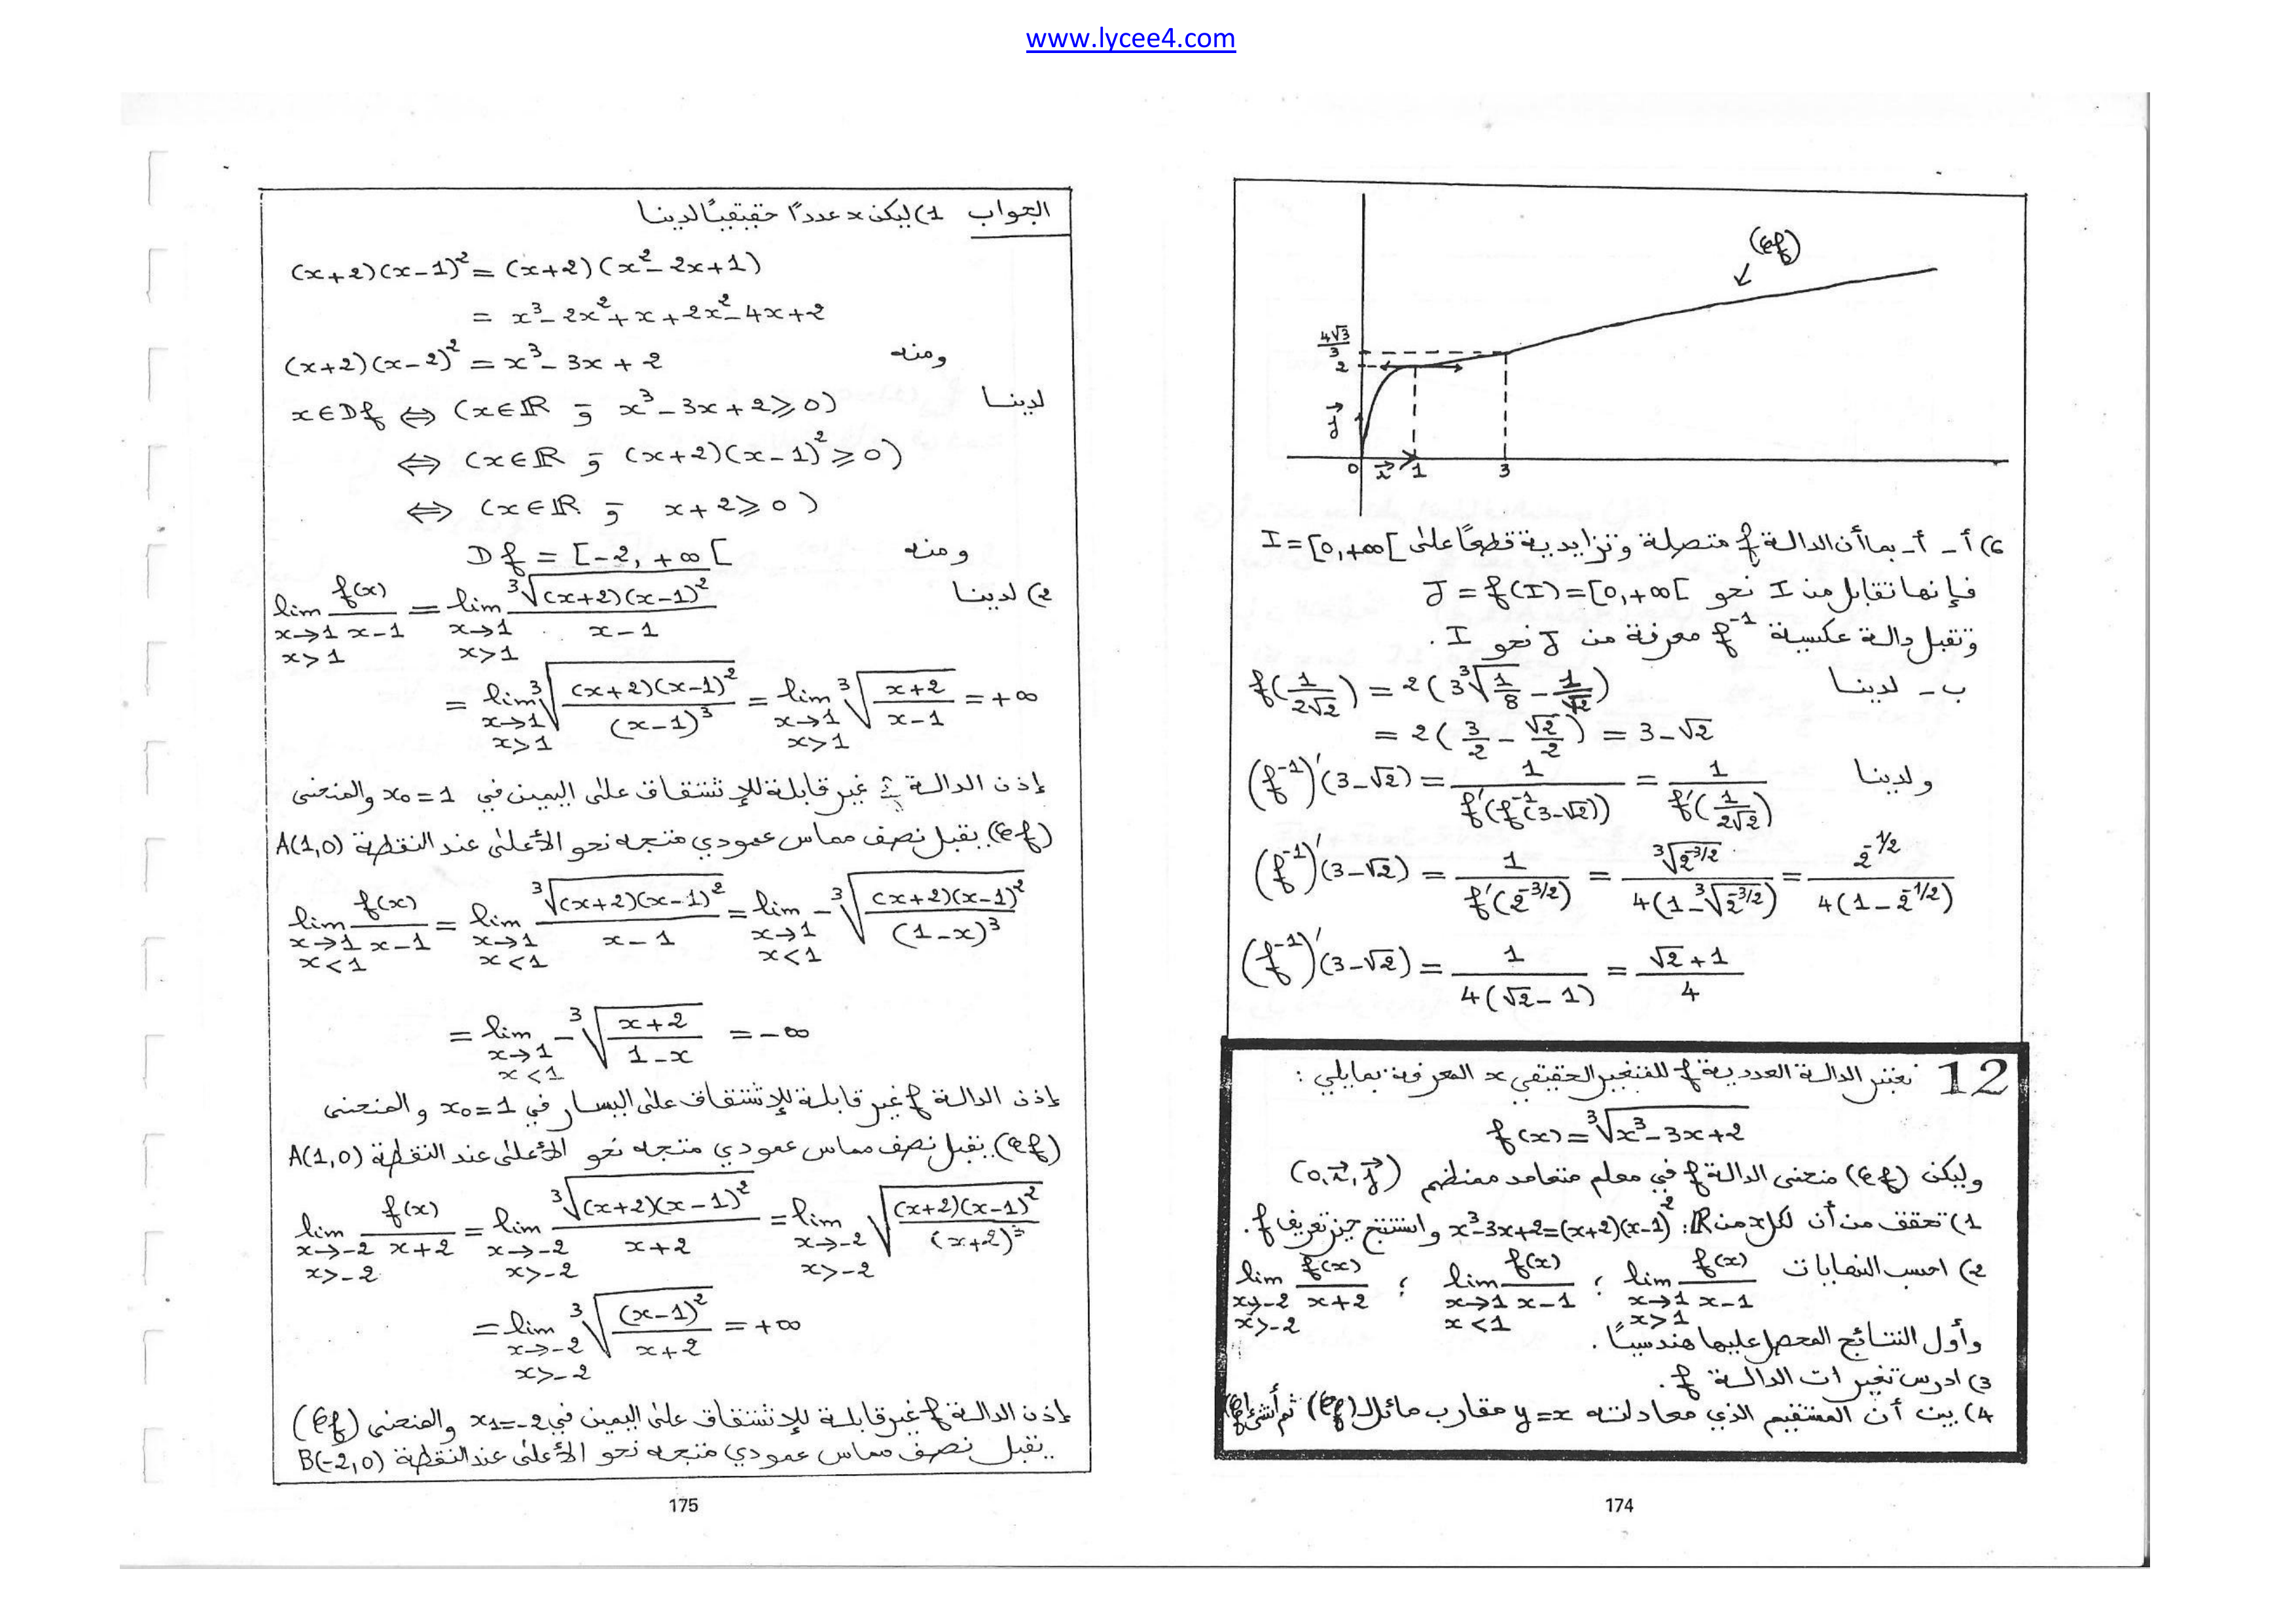 www.lycee4.com
(𝒞f)
4√3/3
2
j⃗
0 i⃗ 1 3
6) أ - أ - بما أن الدالة f متصلة وتزايدية قطعًا على I = [0,+∞[
فإنها تقابل من I نحو J = f(I) = [0,+∞[
وتقبل دالة عكسية f⁻¹ معرفة من J نحو I .
ب - لدينا f(1/(2√2)) = 2(3∛(1/8) - 1/√2)
= 2(3/2 - √2/2) = 3-√2
ولدينا (f⁻¹)'(3-√2) = 1/f'(f⁻¹(3-√2)) = 1/f'(1/(2√2))
(f⁻¹)'(3-√2) = 1/f'(2^(-3/2)) = ∛(2^(-3/2))/(4(1-∛(2^(-3/2)))) = 2^(-1/2)/(4(1-2^(-1/2)))
(f⁻¹)'(3-√2) = 1/(4(√2-1)) = (√2+1)/4
12 نعتبر الدالة العددية f للمتغير الحقيقي x المعرفة بمايلي :
f(x) = ∛(x³-3x+2)
وليكن (𝒞f) منحنى الدالة f في معلم متعامد ممنظم (0,i⃗,j⃗)
1) تحقق من أن لكل x من ℝ : x³-3x+2=(x+2)(x-1)² واستنتج حيز تعريف f.
2) احسب النهايات lim_(x→1, x>1) f(x)/(x-1) ؛ lim_(x→1, x<1) f(x)/(x-1) ؛ lim_(x→-2, x>-2) f(x)/(x+2)
وأول النتائج المحصل عليها هندسيًا .
3) ادرس تغيرات الدالة f .
4) بين أن المستقيم الذي معادلته y=x مقارب مائل لـ (𝒞f) ثم أنشئ (𝒞f)
174
الجواب 1) ليكن x عددًا حقيقيًا لدينا
(x+2)(x-1)² = (x+2)(x²-2x+1)
= x³-2x²+x+2x²-4x+2
ومنه (x+2)(x-2)² = x³-3x+2
لدينا x∈Df ⇔ (x∈ℝ و x³-3x+2⩾0)
⇔ (x∈ℝ و (x+2)(x-1)²⩾0)
⇔ (x∈ℝ و x+2⩾0)
ومنه Df = [-2,+∞[
2) لدينا lim_(x→1, x>1) f(x)/(x-1) = lim_(x→1, x>1) ∛((x+2)(x-1)²)/(x-1)
= lim_(x→1, x>1) ∛((x+2)(x-1)²/(x-1)³) = lim_(x→1, x>1) ∛((x+2)/(x-1)) = +∞
إذن الدالة f غير قابلة للإشتقاق على اليمين في x₀=1 والمنحنى
(𝒞f) يقبل نصف مماس عمودي متجه نحو الأعلى عند النقطة A(1,0)
lim_(x→1, x<1) f(x)/(x-1) = lim_(x→1, x<1) ∛((x+2)(x-1)²)/(x-1) = lim_(x→1, x<1) -∛((x+2)(x-1)²/(1-x)³)
= lim_(x→1, x<1) -∛((x+2)/(1-x)) = -∞
إذن الدالة f غير قابلة للإشتقاق على اليسار في x₀=1 والمنحنى
(𝒞f) يقبل نصف مماس عمودي متجه نحو الأعلى عند النقطة A(1,0)
lim_(x→-2, x>-2) f(x)/(x+2) = lim_(x→-2, x>-2) ∛((x+2)(x-1)²)/(x+2) = lim_(x→-2, x>-2) √((x+2)(x-1)²/(x+2)³)
= lim_(x→-2, x>-2) ∛((x-1)²/(x+2)) = +∞
إذن الدالة f غير قابلة للإشتقاق على اليمين في x₁=-2 والمنحنى (𝒞f)
يقبل نصف مماس عمودي متجه نحو الأعلى عند النقطة B(-2,0)
175